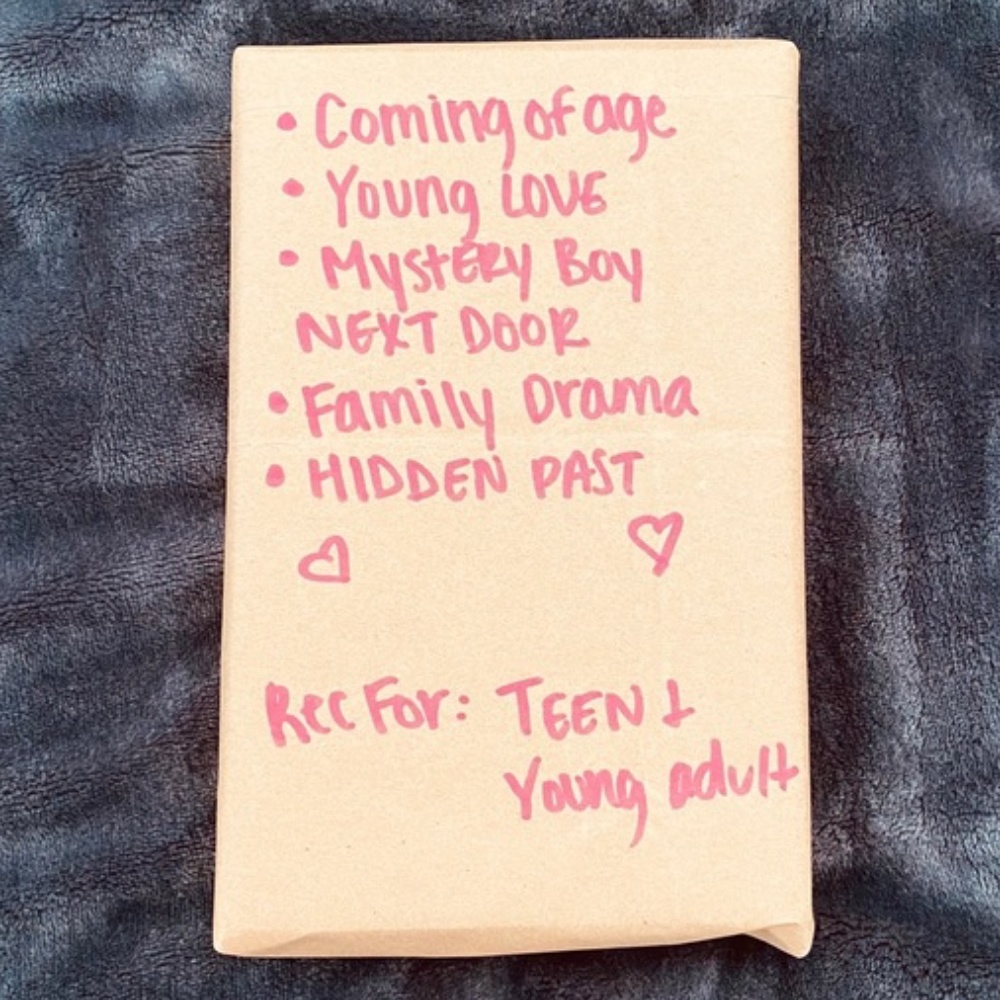 • Coming of age
• Young LOVE
• MystERy Boy
NEXT DOOR
• Family Drama
• HIDDEN PAST
Rec For: TEEN &
Young adult